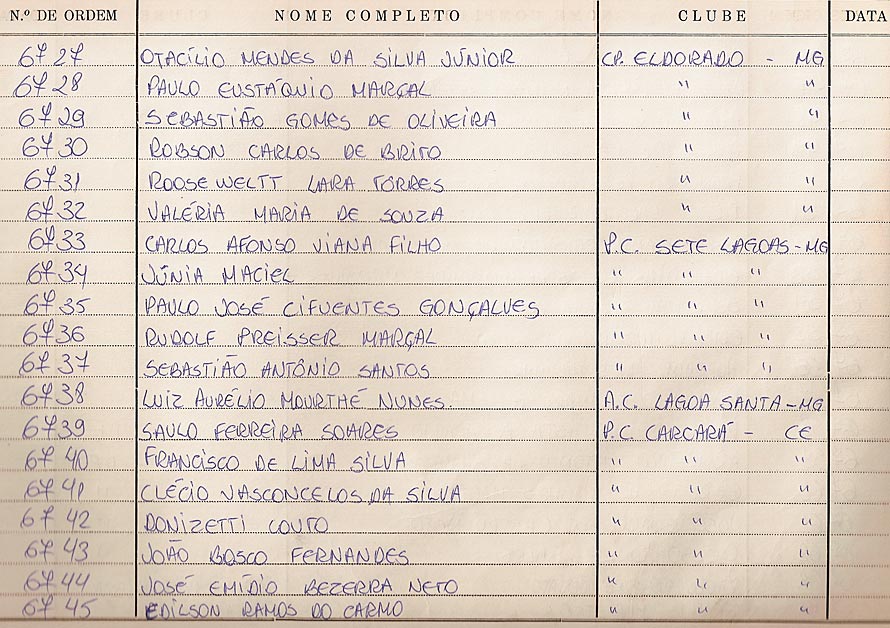 N.º DE ORDEM NOME COMPLETO CLUBE DATA
6727 OTACÍLIO MENDES DA SILVA JÚNIOR CP. ELDORADO - MG
6728 PAULO EUSTÁQUIO MARÇAL " "
6729 SEBASTIÃO GOMES DE OLIVEIRA " "
6730 ROBSON CARLOS DE BRITO " "
6731 ROOSEWELTT LARA TÔRRES " "
6732 VALÉRIA MARIA DE SOUZA " "
6733 CARLOS AFONSO VIANA FILHO P.C. SETE LAGOAS - MG
6734 JÚNIA MACIEL " " "
6735 PAULO JOSÉ CIFUENTES GONÇALVES " " "
6736 RUDOLF PREISSER MARÇAL " " "
6737 SEBASTIÃO ANTÔNIO SANTOS " " "
6738 LUIZ AURÉLIO MOURTHÉ NUNES. A.C. LAGOA SANTA - MG
6739 SAULO FERREIRA SOARES P.C. CARCARÁ - CE
6740 FRANCISCO DE LIMA SILVA " " "
6741 CLÉCIO VASCONCELOS DA SILVA " " "
6742 DONIZETTI COUTO " " "
6743 JOÃO BOSCO FERNANDES " " "
6744 JOSÉ EMÍDIO BEZERRA NETO " " "
6745 EDILSON RAMOS DO CARMO " " "